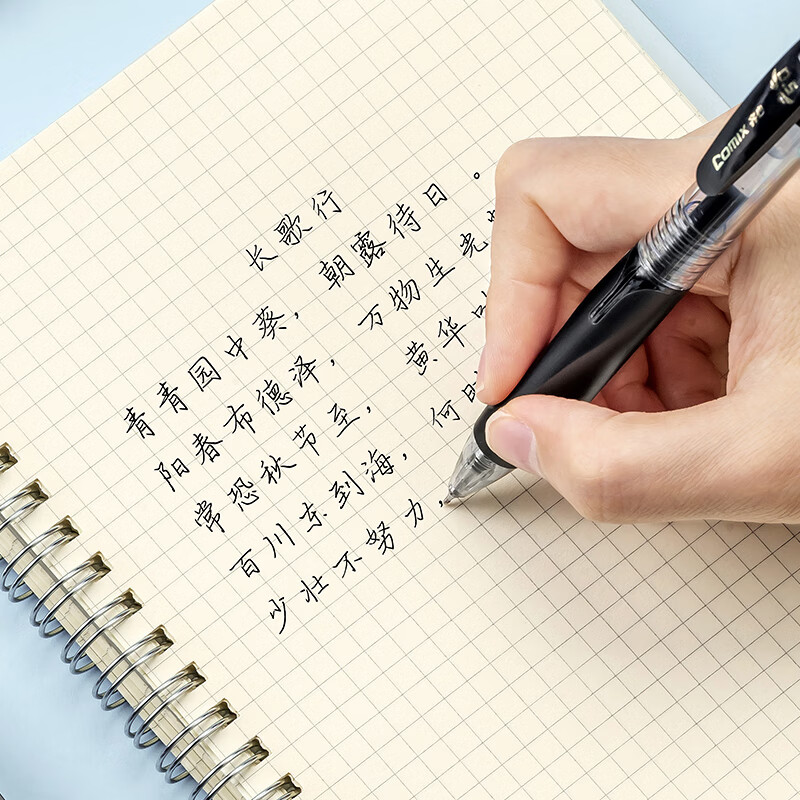 长歌行
青青园中葵，朝露待日。
阳春布德泽，万物生光
常恐秋节至，黄华
百川东到海，何时
少壮不努力，
Comix 齐心